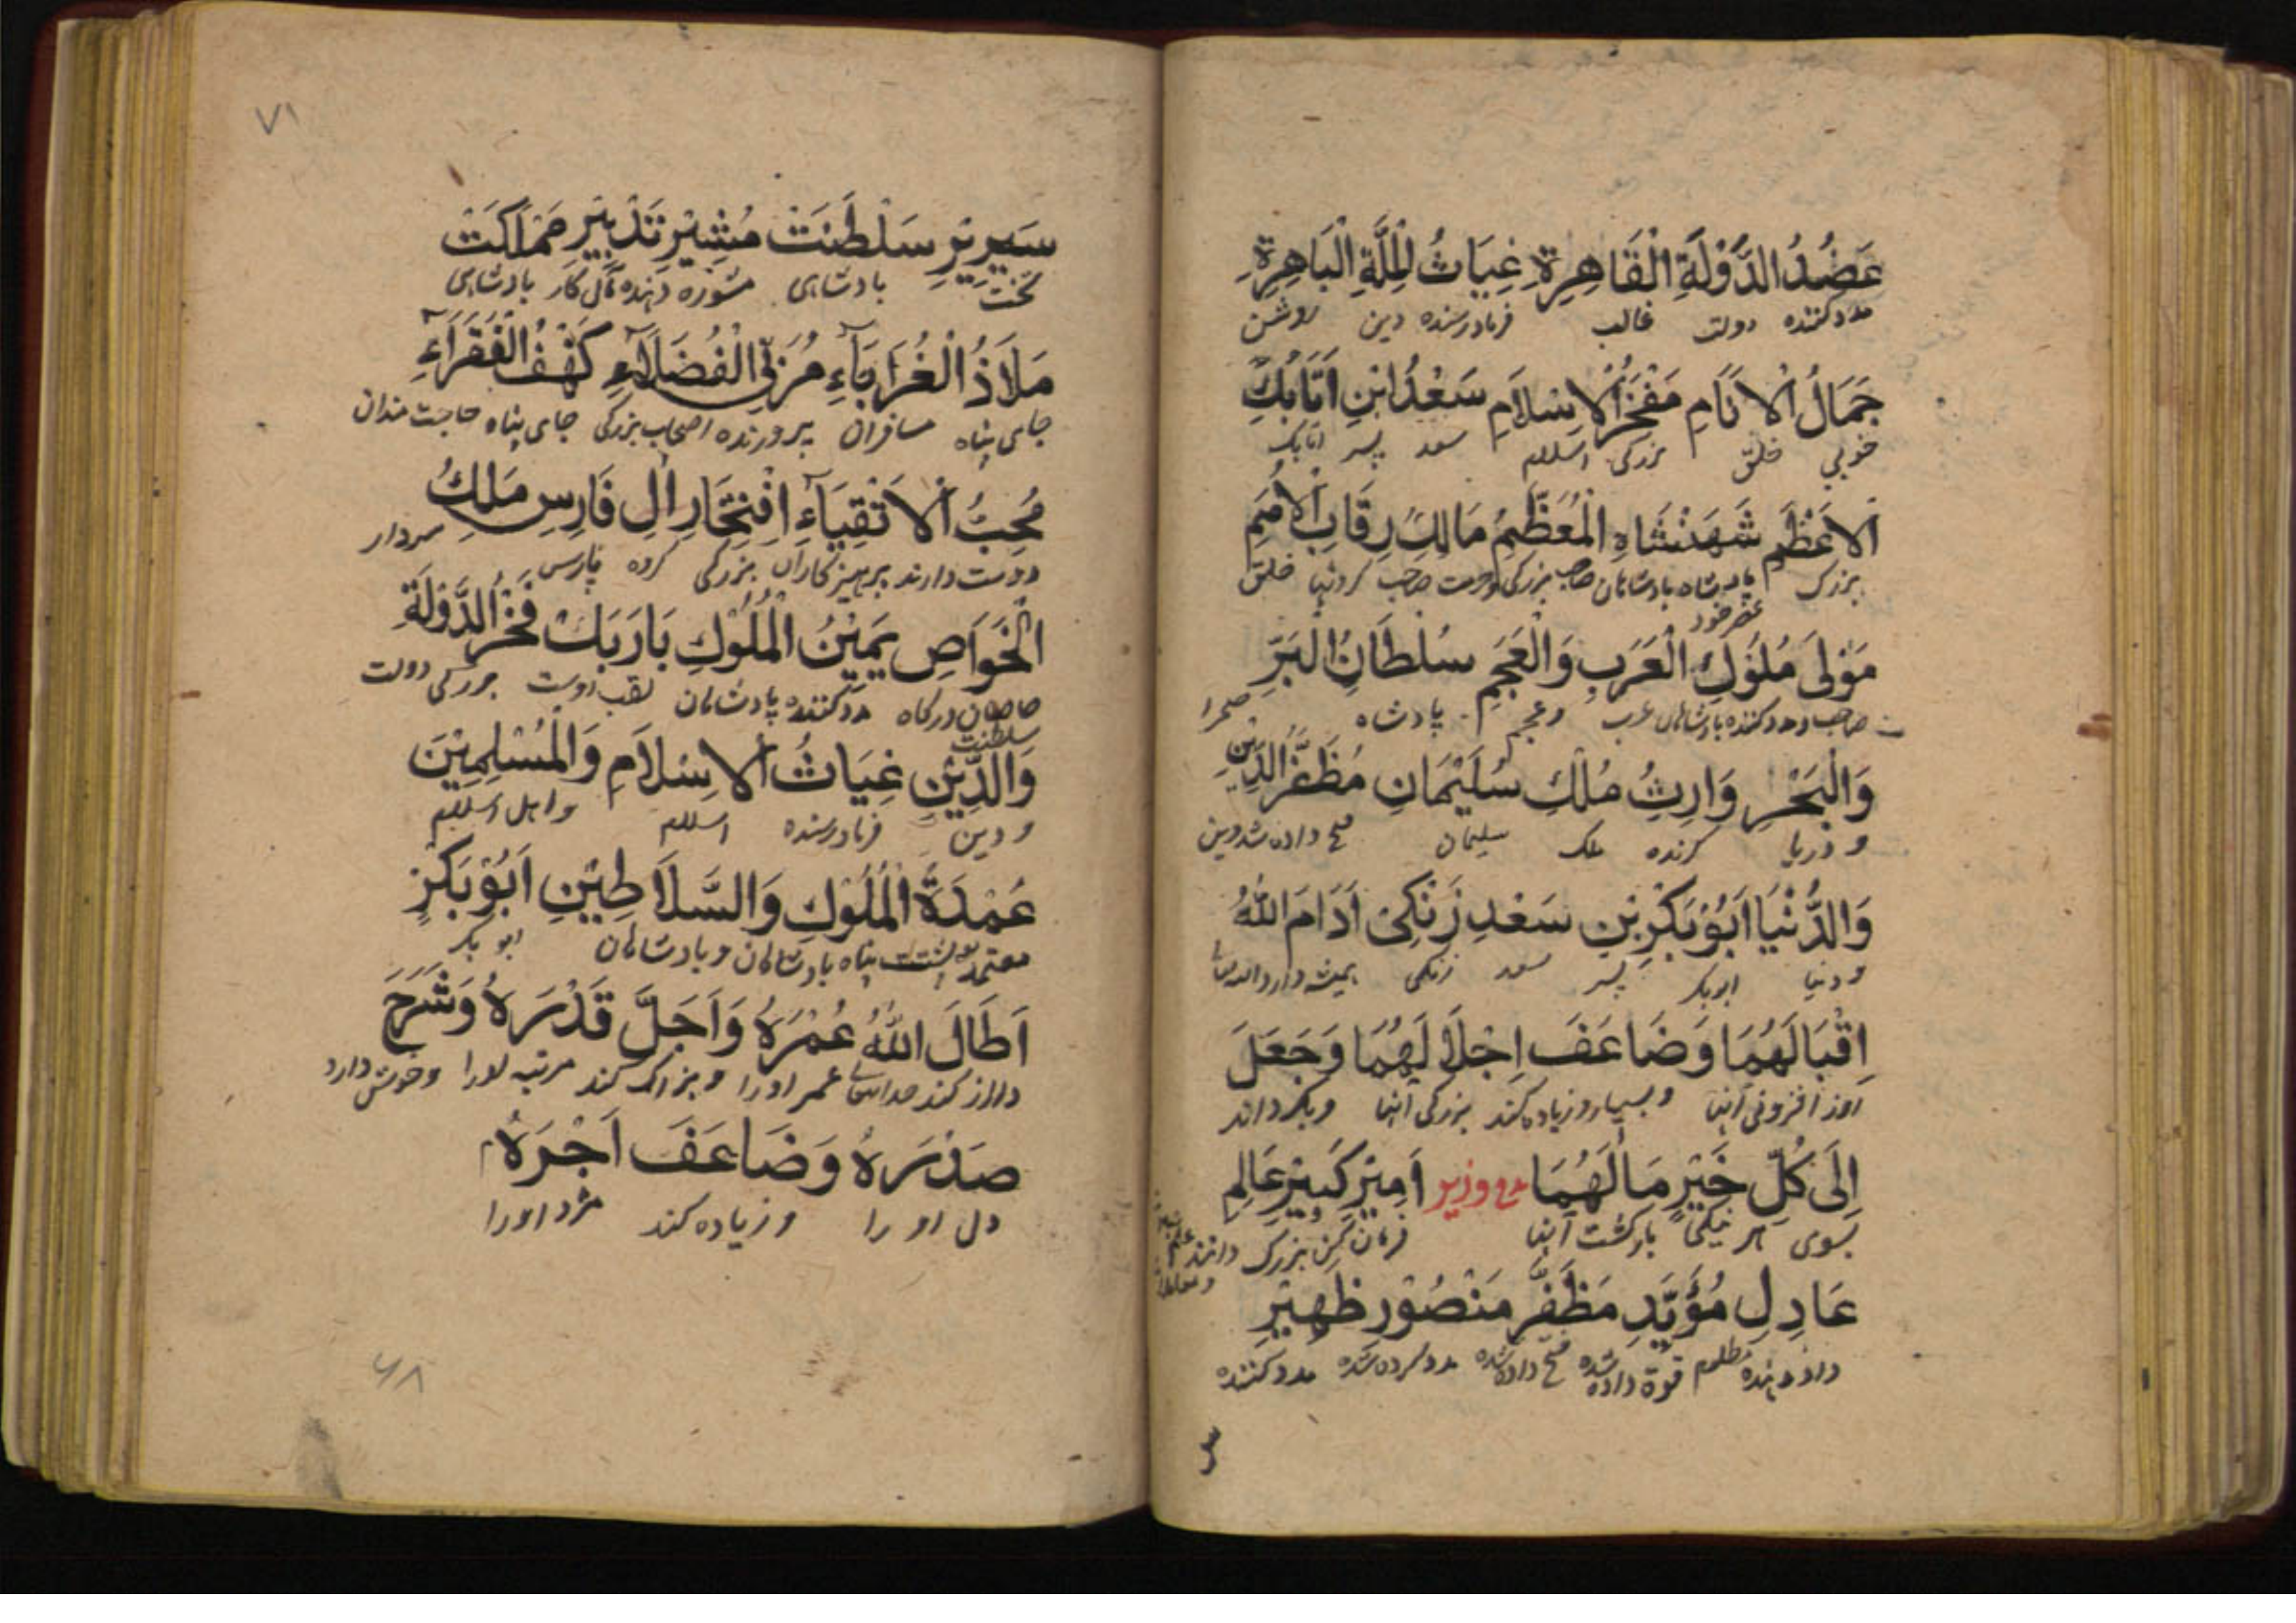 عَضُدُ الدَّوْلَةِ الْقَاهِرَةِ غِيَاثُ الْمِلَّةِ الْبَاهِرَةِ
مدد کننده دولت غالب فریادرسنده دین روشن
جَمَالُ الْاَنَامِ مَفْخَرُ الْاِسْلَامِ سَعْدُ ابْنِ اَتَابُكِ
خوبی خلق بزرگی اسلام سعد پسر اتابک
الْاَعْظَمِ شَهَنْشَاهِ الْمُعَظَّمِ مَالِكِ رِقَابِ الْاُمَمِ
بزرگ پادشاه بادشاهان صاحب بزرگی صاحب گردنها خلق
مَوْلَى مُلُوكِ الْعَرَبِ وَالْعَجَمِ سُلْطَانُ الْبَرِّ
صاحب و مدد کننده بادشاهان عرب و عجم پادشاه صحرا
وَالْبَحْرِ وَارِثُ مُلْكِ سُلَيْمَانِ مُظَفَّرُ الدِّيْنِ
و دریا گرنده ملک سلیمان فتح داده شد دین
وَالدُّنْيَا اَبُوْبَكْرِ بْنِ سَعْدِ زَنْكِيْ اَدَامَ اللهُ
و دنیا ابوبکر پسر سعد زنکی همیشه دارد
اِقْبَالَهُمَا وَضَاعَفَ اِجْلَالَهُمَا وَجَعَلَ
روز افزونی اینها و بسیار و زیاده کند بزرگی اینها و بگرداند
اِلَى كُلِّ خَيْرٍ مَاٰلَهُمَا وزیر اَمِيْرِ كَبِيْرِ عَالِمِ
بسوی هر نیکی بازگشت اینها فرمان کن بزرگ دانند علم
عَادِلِ مُؤَيَّدِ مُظَفَّرِ مَنْصُوْرِ ظَهِيْرِ
داد دهنده مظلوم قوة داده شده فتح داده شده مدد کرده شده مدد کننده
۷۱
سَرِيْرِ سَلْطَنَتْ مُشِيْرِ تَدْبِيْرِ مَمْلَكَتْ
تخت بادشاهی مشوره دهنده مآل کار بادشاهی
مَلَاذُ الْغُرَبَآءِ مُرَبِّي الْفُضَلَآءِ كَهْفُ الْفُقَرَآءِ
جای پناه مسافران پرورنده اصحاب بزرگی جای پناه حاجت مندان
مُحِبُّ الْاَتْقِيَآءِ اِفْتِخَارِ اٰلِ فَارِسِ مَلِكُ
دوست دارند پرهیزکاران بزرگی گروه پارس سردار
الْخَوَاصِ يَمِيْنُ الْمُلُوْكِ بَارَبَكْ فَخْرُ الدَّوْلَةِ
خاصان درگاه مدد کننده پادشاهان لقب اوست بزرگی دولت
سلطنت
وَالدِّيْنِ غِيَاثُ الْاِسْلَامِ وَالْمُسْلِمِيْنَ
و دین فریادرسنده اسلام و اهل اسلام
عُمْدَةُ الْمُلُوْكِ وَالسَّلَاطِيْنِ اَبُوْبَكْرٍ
معتمد پشت پناه بادشاهان و بادشاهان ابو بکر
اَطَالَ اللهُ عُمْرَهُ وَاَجَلَّ قَدْرَهُ وَشَرَحَ
دراز کند خدایتعالی عمر اورا و بزرگ کند مرتبه اورا و خوش دارد
صَدْرَهُ وَضَاعَفَ اَجْرَهُ
دل او را و زیاده کند مزد اورا
۶۸